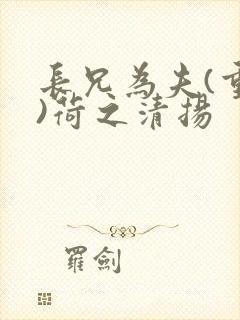 長兄為夫(重
)荷之清揚
羅劍